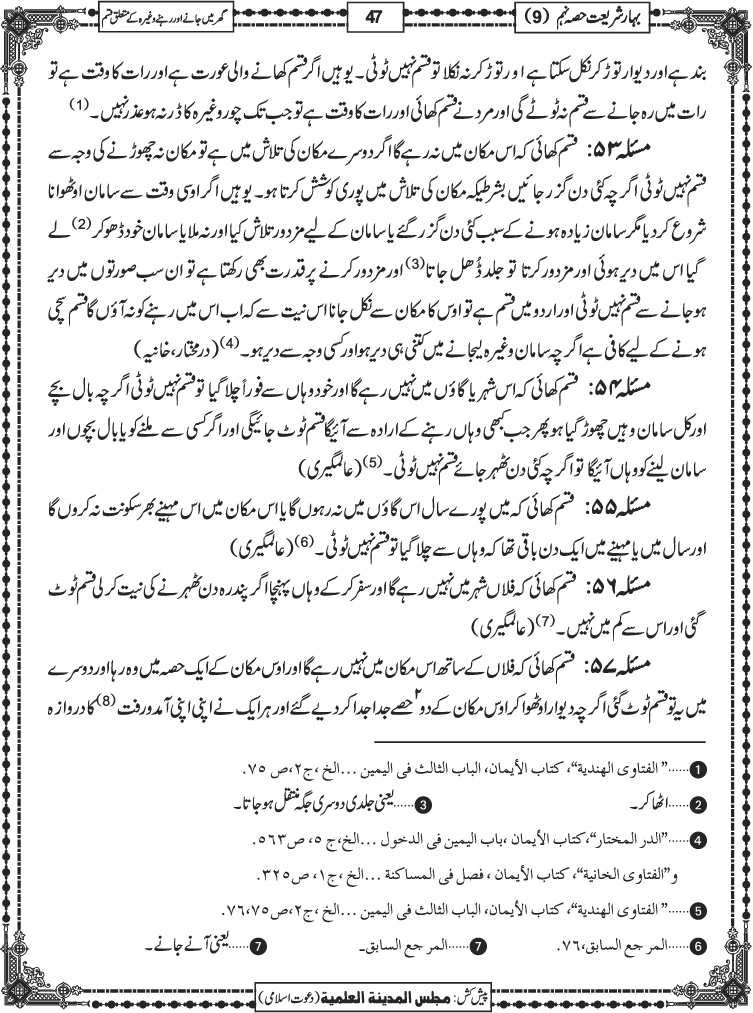 بہار شریعت حصہ نہم (9)
47
گھر میں جانے اور رہنے وغیرہ کے متعلق قسم
بند ہے اور دیوار توڑ کر نکل سکتا ہے اور توڑ کر نہ نکلا تو قسم نہیں ٹوٹی۔ یوہیں اگر قسم کھانے والی عورت ہے اور رات کا وقت ہے تو
رات میں رہ جانے سے قسم نہ ٹوٹے گی اور مرد نے قسم کھائی اور رات کا وقت ہے تو جب تک چور وغیرہ کا ڈر نہ ہو عذر نہیں۔(1)
مسئلہ ۵۳: قسم کھائی کہ اس مکان میں نہ رہے گا اگر دوسرے مکان کی تلاش میں ہے تو مکان نہ چھوڑنے کی وجہ سے
قسم نہیں ٹوٹی اگرچہ کئی دن گزر جائیں بشرطیکہ مکان کی تلاش میں پوری کوشش کرتا ہو۔ یوہیں اگر اوسی وقت سے سامان اوٹھوانا
شروع کر دیا مگر سامان زیادہ ہونے کے سبب کئی دن گزر گئے یا سامان کے لیے مزدور تلاش کیا اور نہ ملا یا سامان خود ڈھو کر(2) لے
گیا اس میں دیر ہوئی اور مزدور کرتا تو جلد ڈھل جاتا(3) اور مزدور کرنے پر قدرت بھی رکھتا ہے تو ان سب صورتوں میں دیر
ہو جانے سے قسم نہیں ٹوٹی اور اردو میں قسم ہے تو اوس کا مکان سے نکل جانا اس نیت سے کہ اب اس میں رہنے کو نہ آؤں گا قسم سچی
ہونے کے لیے کافی ہے اگرچہ سامان وغیرہ لیجانے میں کتنی ہی دیر ہو اور کسی وجہ سے دیر ہو۔(4) (درمختار، خانیہ)
مسئلہ ۵۴: قسم کھائی کہ اس شہر یا گاؤں میں نہیں رہے گا اور خود وہاں سے فوراً چلا گیا تو قسم نہیں ٹوٹی اگرچہ بال بچے
اور کل سامان وہیں چھوڑ گیا ہو پھر جب کبھی وہاں رہنے کے ارادہ سے آئیگا قسم ٹوٹ جائیگی اور اگر کسی سے ملنے کو یا بال بچوں اور
سامان لینے کو وہاں آئیگا تو اگرچہ کئی دن ٹھہر جائے قسم نہیں ٹوٹی۔(5) (عالمگیری)
مسئلہ ۵۵: قسم کھائی کہ میں پورے سال اس گاؤں میں نہ رہوں گا یا اس مکان میں اس مہینے بھر سکونت نہ کروں گا
اور سال میں یا مہینے میں ایک دن باقی تھا کہ وہاں سے چلا گیا تو قسم نہیں ٹوٹی۔(6) (عالمگیری)
مسئلہ ۵۶: قسم کھائی کہ فلاں شہر میں نہیں رہے گا اور سفر کر کے وہاں پہنچا اگر پندرہ دن ٹھہرنے کی نیت کر لی قسم ٹوٹ
گئی اور اس سے کم میں نہیں۔(7) (عالمگیری)
مسئلہ ۵۷: قسم کھائی کہ فلاں کے ساتھ اس مکان میں نہیں رہے گا اور اوس مکان کے ایک حصہ میں وہ رہا اور دوسرے
میں یہ تو قسم ٹوٹ گئی اگرچہ دیوار اوٹھوا کر اوس مکان کے دو۲ حصے جدا جدا کر دیے گئے اور ہر ایک نے اپنی اپنی آمد و رفت(8) کا دروازہ
1......”الفتاوى الهندية“، كتاب الأيمان، الباب الثالث فى اليمين ...الخ، ج٢، ص ٧٥.
2......اٹھا کر۔ 3......یعنی جلدی دوسری جگہ منتقل ہو جاتا۔
4......”الدر المختار“، كتاب الأيمان، باب اليمين فى الدخول ...الخ، ج ٥، ص٥٦٣.
و”الفتاوى الخانية“، كتاب الأيمان، فصل فى المساكنة ...الخ، ج١، ص٣٢٥.
5......”الفتاوى الهندية“، كتاب الأيمان، الباب الثالث فى اليمين ...الخ، ج٢، ص٧٥،٧٦.
6......المرجع السابق، ٧٦. 7......المرجع السابق۔ 7......یعنی آنے جانے۔
پیش کش: مجلس المدینۃ العلمیۃ (دعوت اسلامی)